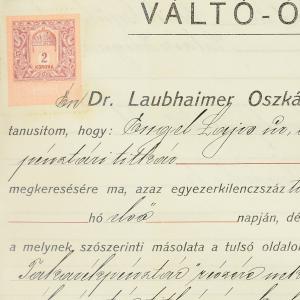 VÁLTÓ-Ó
2
KORONA
Én Dr. Laubhaimer Oszká
tanusitom, hogy: Engel Lajos úr,
pénztári titkár
megkeresésére ma, azaz egyezerkilencszáz
hó első napján, dé
a melynek, szószerinti másolata a tulsó oldalo
Takarékpénztár részére